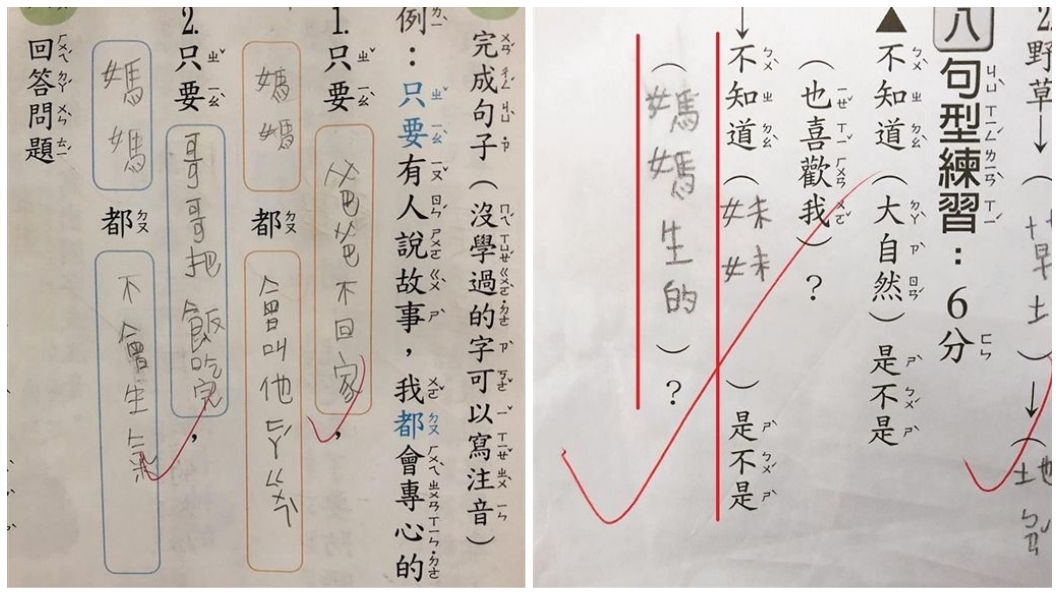 完成句子（沒學過的字可以寫注音）
例：只要有人說故事，我都會專心的
1.只要爸爸不回家，
媽媽都會叫他
2.只要哥哥把飯吃完，
媽媽都不會生氣
回答問題
2.野草→（草土）→（地
八 句型練習：6分
▲不知道（大自然）是不是
（也喜歡我）？
→不知道（妹妹）是不是
（媽媽生的）？